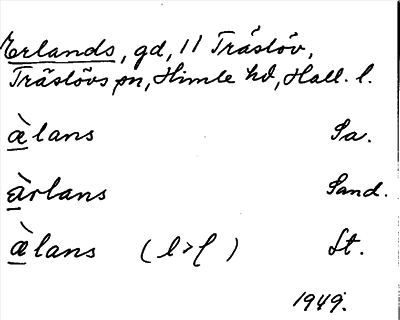 Erlands, gd, 11 Träslöv,
Träslövs sn, Himle hd, Hall. l.
æ̀lans Sa.
àrlans Sand.
æ̀lans (l > ʃ) St.
1949.